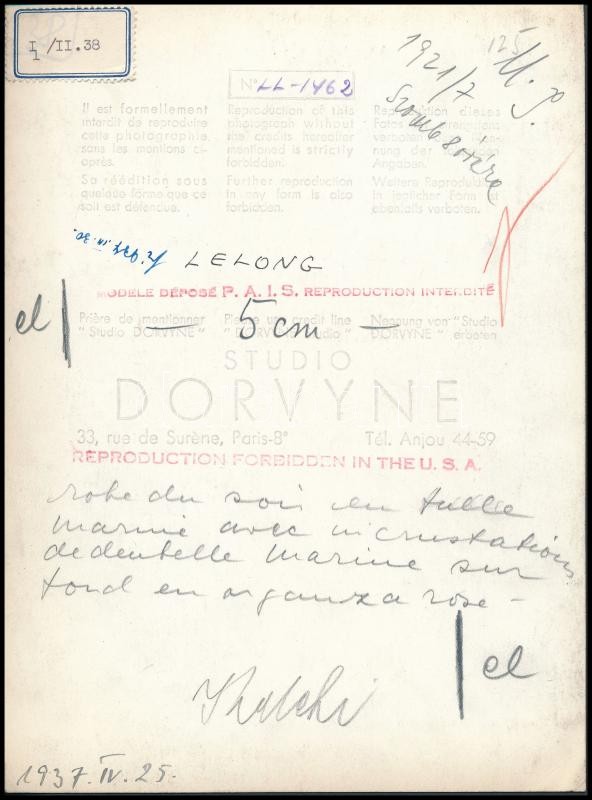 I/1 /II.38
125
1921/7
N° LL-1462
Il est formellement
interdit de reproduire
cette photographie
sans les mentions ci-
après.
Sa réédition sous
quelque forme que ce
soit est défendue.
Reproduction of this
photograph without
the credits hereafter
mentioned is strictly
forbidden.
Further reproduction
in any form is also
forbidden.
Reproduktion dieses
Fotos
verboten
nung der
Angaben.
Weitere Reproduktion
in jeglicher Form ist
ebenfalls verboten.
LELONG
MODÈLE DÉPOSÉ P. A. I. S. REPRODUCTION INTERDITE
el
Prière de mentionner
" Studio DORVYNE "
Please use credit line
" DORVYNE Studio "
Nennung von "Studio
DORVYNE" erbeten
— 5 cm —
STUDIO
DORVYNE
33, rue de Surène, Paris-8e
Tél. Anjou 44-59
REPRODUCTION FORBIDDEN IN THE U. S. A.
robe du soir en tulle
marine avec incrustations
de dentelle marine sur
fond en organza rose -
el
1937. IV. 25.